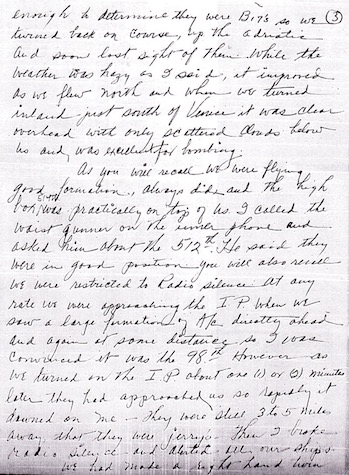 enough to determine they were B17s so we (3)
turned back on course, up the adriatic
and soon lost sight of them. While the
weather was hazy as I said, it improved
as we flew north and when we turned
inland just south of Venice it was clear
overhead with only scattered clouds below
us and was excellent for bombing.
As you will recall we were flying
good formation, always did, and the high
box, 514th was practically on top of us. I called the
waist gunner on the inner phone and
asked him about the 512th. He said they
were in good position. you will also recall
we were restricted to Radio silence. At any
rate we were approaching the I P when we
saw a large formation of A/c directly ahead
and again at some distance so I was
convinced it was the 98th. However as
we turned on the I P about one (1) or (2) minutes
later they had approached us so rapidly it
dawned on me - They were still 3 to 5 miles
away, that they were jerrys. Then I broke
radio silence and alerted all our ships.
We had made a right hand turn